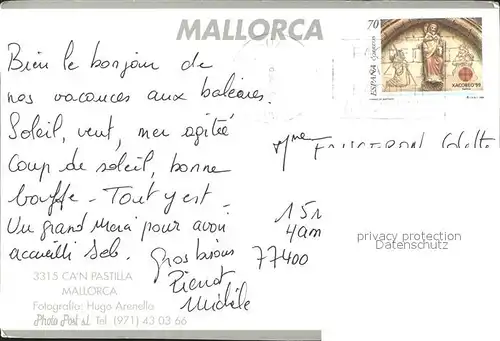 MALLORCA
70
ESPAÑA
CORREOS
XACOBEO'99
Bien le bonjour de
nos vacances aux baléares.
Soleil, vent, mer agitée
Coup de soleil, bonne
bouffe - Tout y est -
Un grand merci pour avoir
accueilli Seb.
Gros bisous
Pierrot
Michèle
Mme
77400
privacy protection
Datenschutz
3315 CA'N PASTILLA
MALLORCA
Fotografía: Hugo Arenella
Photo Post s.l. Tel (971) 43 03 66